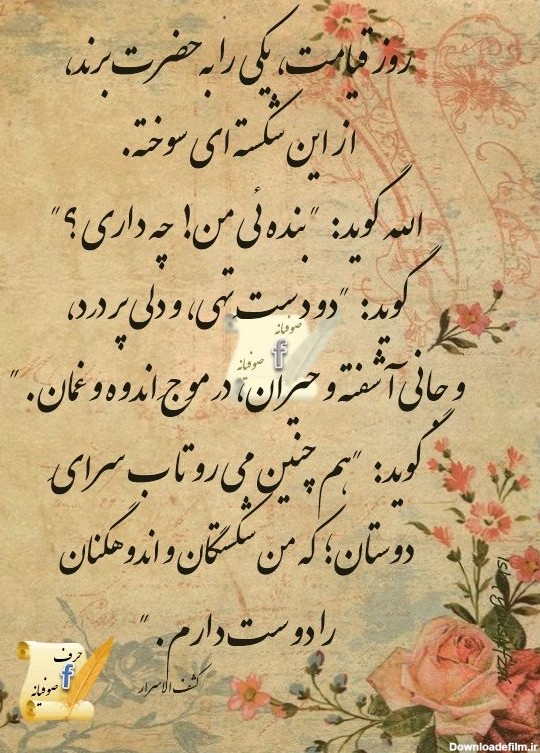 روز قیامت، یکی را به حضرت برند،
از این شکسته ای سوخته.
الله گوید: "بنده ئی من! چه داری؟"
گوید: "دو دست تهی، و دلی پر درد،
صوفیانه
f
صوفیانه
و جانی آشفته و حیران، در موج اندوه و غمان."
گوید: "هم چنین می رو تاب سرای
دوستان؛ که من شکستگان و اندوهگنان
را دوست دارم."
کشف الاسرار
حرف
f
صوفیانه
Downloadefilm.ir